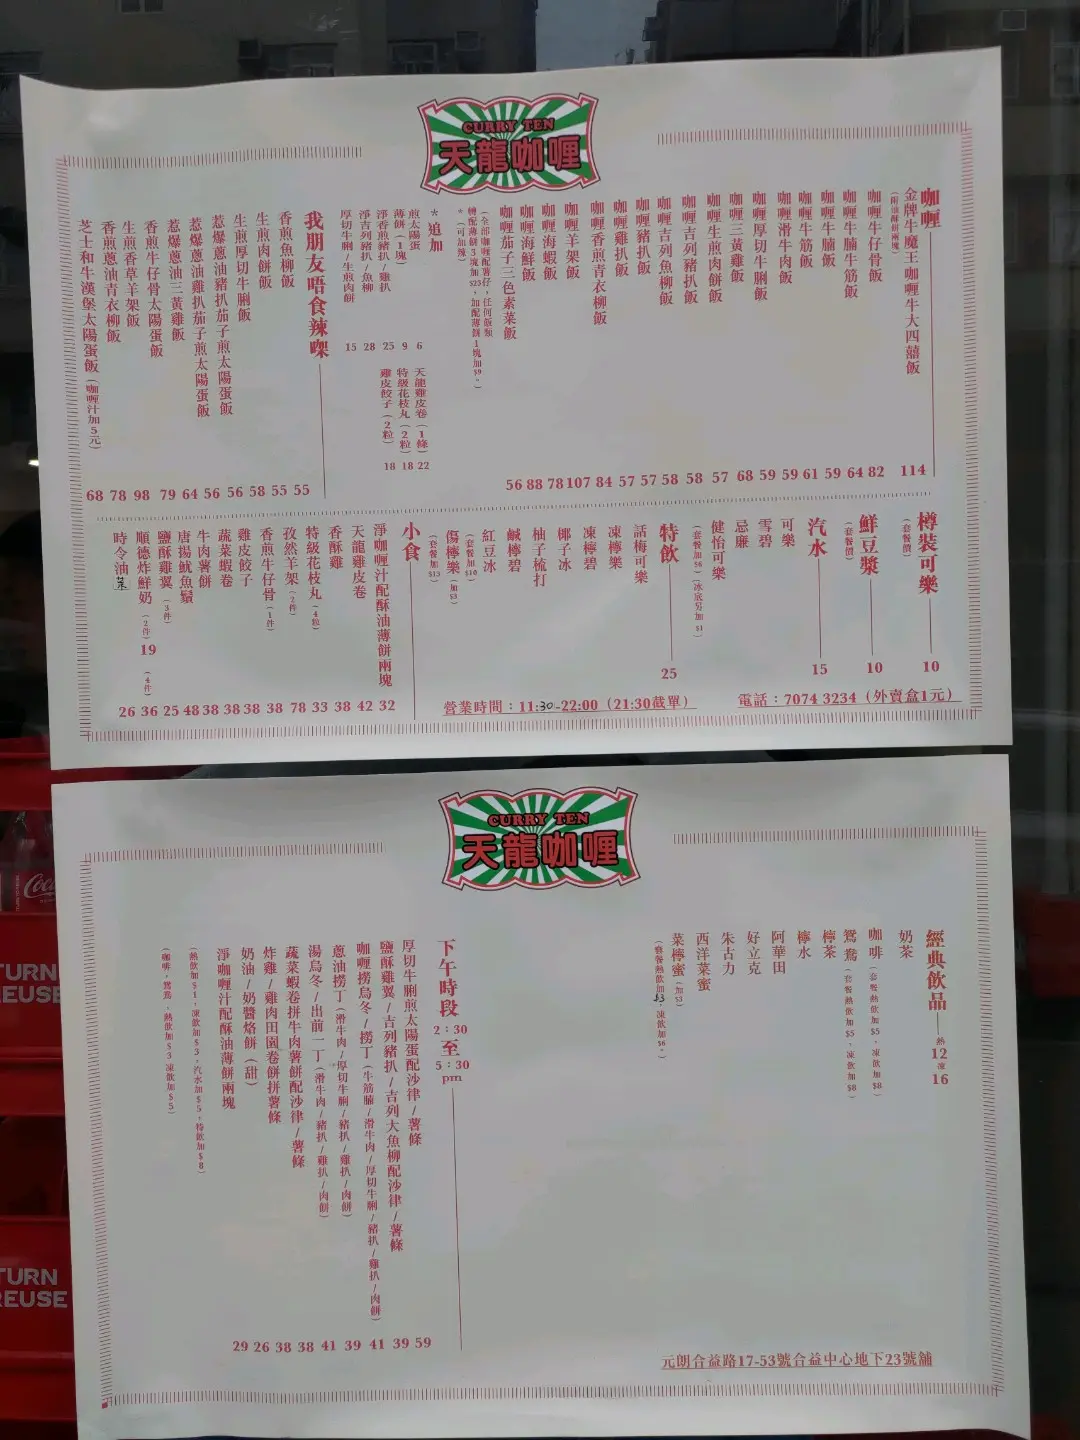 CURRY TEN
天龍咖喱
咖喱
金牌牛魔王咖喱牛大四囍飯 114
咖喱牛仔骨飯 82
咖喱牛腩牛筋飯 64
咖喱牛腩飯 59
咖喱牛筋飯 61
咖喱滑牛肉飯 59
咖喱厚切牛脷飯 59
咖喱三黃雞飯 68
咖喱生煎肉餅飯 57
咖喱吉列豬扒飯 58
咖喱吉列魚柳飯 58
咖喱豬扒飯 57
咖喱雞扒飯 57
咖喱香煎青衣柳飯 84
咖喱羊架飯 107
咖喱海蝦飯 78
咖喱海鮮飯 88
咖喱茄子三色素菜飯 56
(全部咖喱配薯仔，任何飯類
轉配薄餅3塊加$25，加配薄餅1塊加$9。)
*(可加辣)
*追加
煎太陽蛋 6
薄餅(1塊) 9
淨香煎豬扒/雞扒 25
淨吉列豬扒/魚柳 28
厚切牛脷/生煎肉餅 15
天龍雞皮卷(1條) 22
特級花枝丸(2粒) 18
雞皮餃子(2粒) 18
我朋友唔食辣㗎
香煎魚柳飯 55
生煎肉餅飯 55
生煎厚切牛脷飯 58
惹爆蔥油豬扒茄子煎太陽蛋飯 56
惹爆蔥油雞扒茄子煎太陽蛋飯 56
惹爆蔥油三黃雞飯 64
香煎牛仔骨太陽蛋飯 79
生煎香草羊架飯 98
香煎蔥油青衣柳飯 78
芝士和牛漢堡太陽蛋飯(咖喱汁加5元) 68
樽裝可樂 10
(套餐價)
鮮豆漿 10
(套餐價)
汽水 15
可樂
雪碧
忌廉
健怡可樂
(套餐加$6)(冰底另加$1)
特飲 25
話梅可樂
凍檸樂
凍檸碧
椰子冰
柚子梳打
鹹檸碧
紅豆冰
(套餐加$10)
傷檸樂(加$3)
(套餐加$13)
小食
淨咖喱汁配酥油薄餅兩塊 32
天龍雞皮卷 42
香酥雞 38
特級花枝丸(4粒) 33
孜然羊架(2件) 78
香煎牛仔骨(1件) 38
雞皮餃子 38
蔬菜蝦卷 38
牛肉薯餅 38
唐揚魷魚鬚 48
鹽酥雞翼(3件) 25
順德炸鮮奶(2件) 19 (4件) 36
時令油菜 26
營業時間：11:30-22:00（21:30截單）
電話：7074 3234（外賣盒1元）
CURRY TEN
天龍咖喱
經典飲品 熱 12 凍 16
奶茶
咖啡(套餐熱飲加$5、凍飲加$8)
鴛鴦(套餐熱飲加$5、凍飲加$8)
檸茶
檸水
阿華田
好立克
朱古力
西洋菜蜜
菜檸蜜(加$3)
(套餐熱飲加$3，凍飲加$6。)
下午時段 2：30 至 5：30 pm
厚切牛脷煎太陽蛋配沙律/薯條 59
鹽酥雞翼/吉列豬扒/吉列大魚柳配沙律/薯條 39
咖喱撈烏冬/撈丁(牛筋腩/滑牛肉/厚切牛脷/豬扒/雞扒/肉餅) 41
蔥油撈丁(滑牛肉/厚切牛脷/豬扒/雞扒/肉餅) 39
湯烏冬/出前一丁(滑牛肉/豬扒/雞扒/肉餅) 41
蔬菜蝦卷拼牛肉薯餅配沙律/薯條 38
炸雞/雞肉田園卷餅拼薯條 38
奶油/奶醬烙餅(甜) 26
淨咖喱汁配酥油薄餅兩塊 29
(熱飲加$1，凍飲加$3，汽水加$5，特飲加$8)
(咖啡，鴛鴦、熱飲加$3 凍飲加$5)
元朗合益路17-53號合益中心地下23號舖
Coca
TURN
REUSE
TURN
REUSE